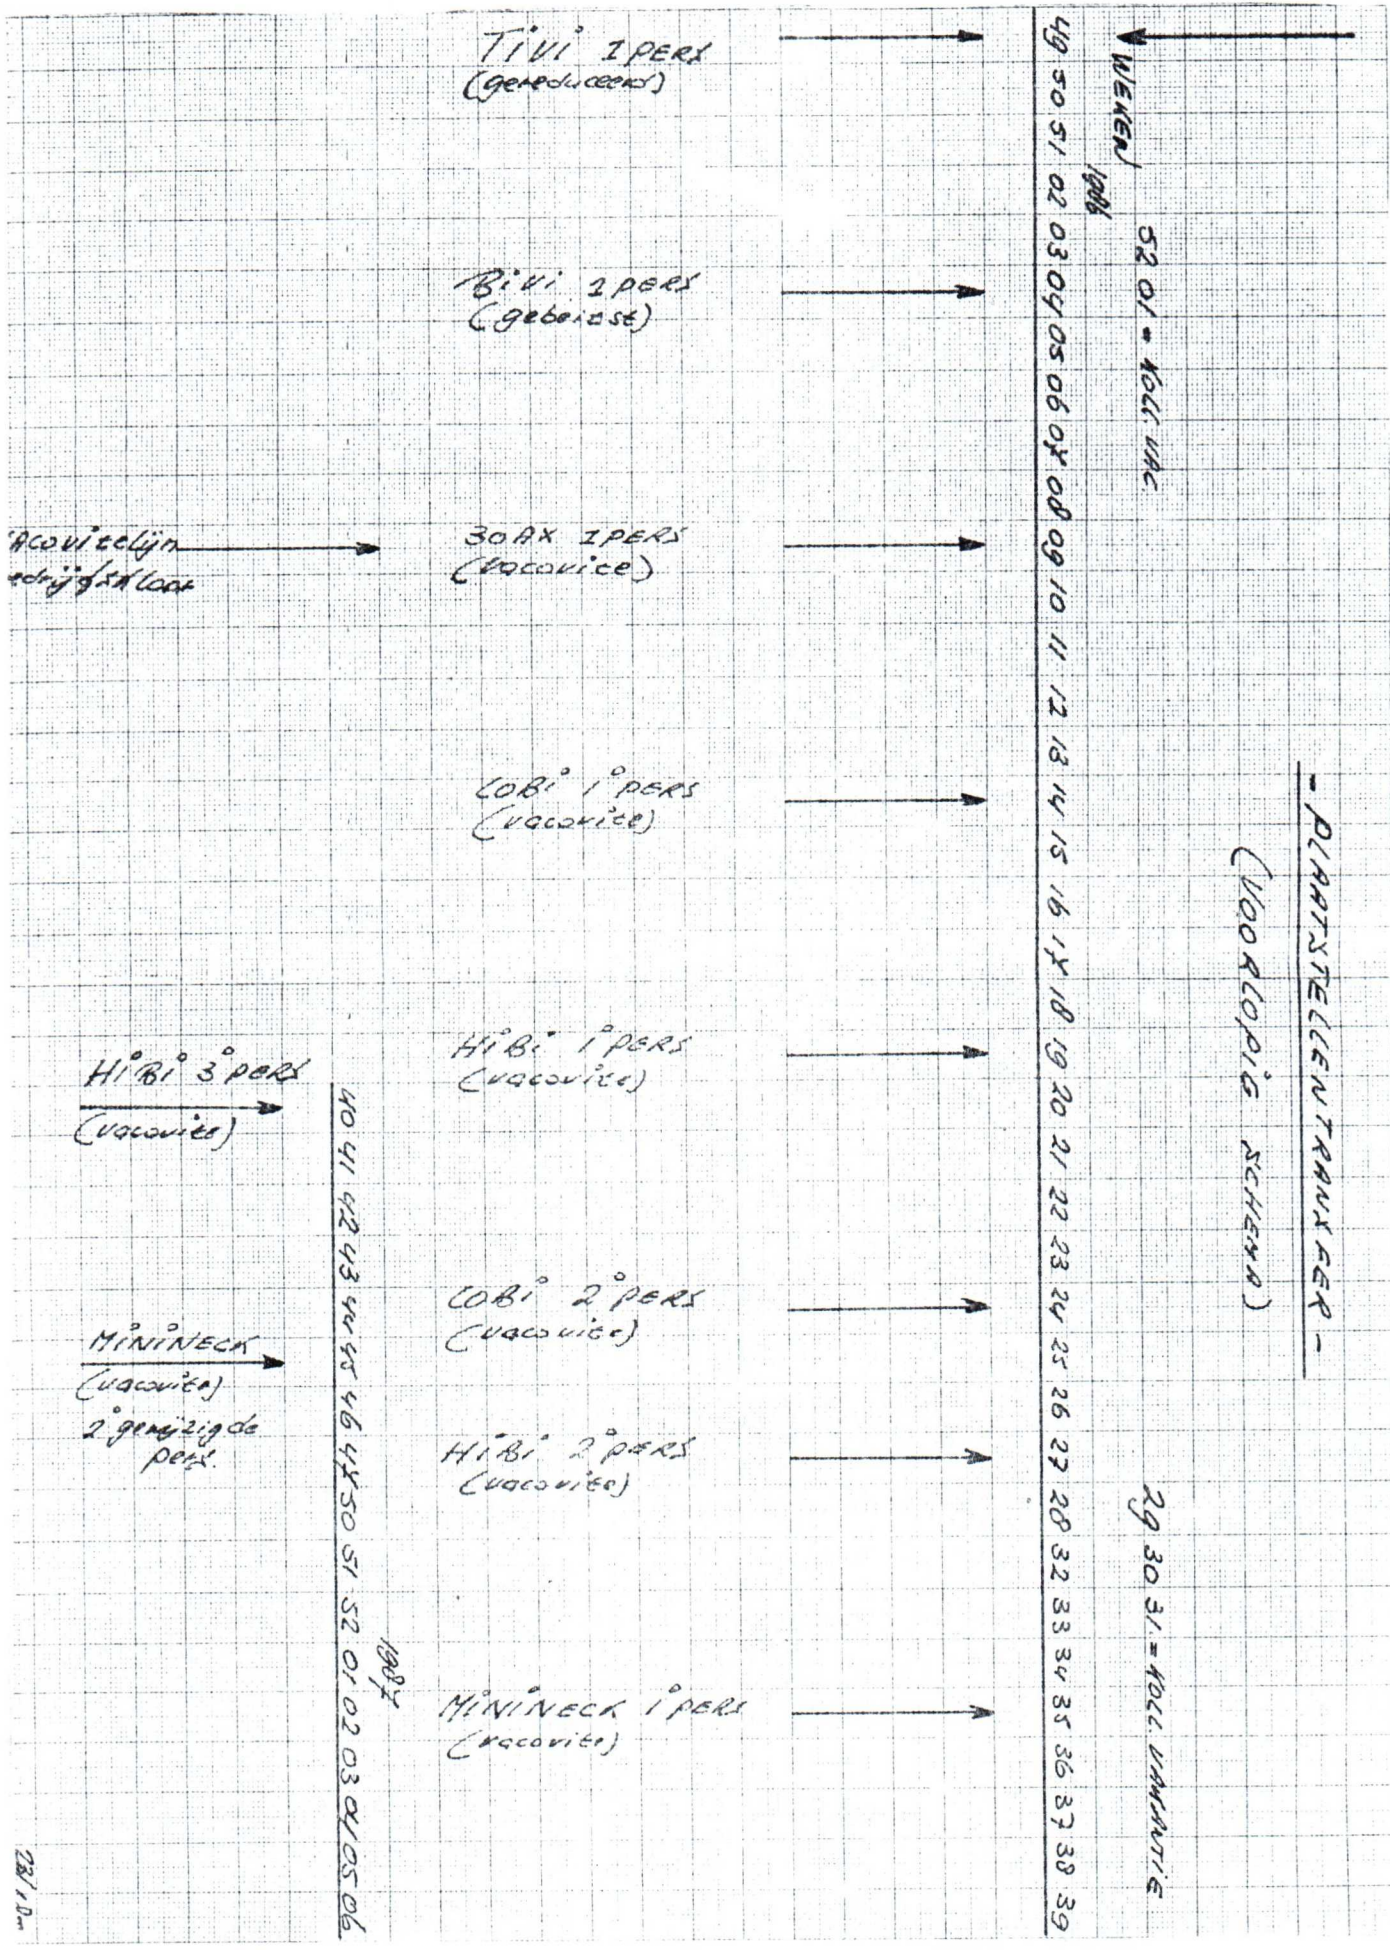 - PLAATSTELLENTRANSFER -
(VOORLOPIG SCHEMA)
52 01 = KOLL. VAC.
29 30 31 = KOLL VAKANTIE
WEKEN
1986
49 50 51 02 03 04 05 06 07 08 09 10 11 12 13 14 15 16 17 18 19 20 21 22 23 24 25 26 27 28 32 33 34 35 36 37 38 39
TiVi 1 PERS
(gereduceerd)
BiVi 1 PERS
(gebeitst)
30AX 1 PERS
(vacovite)
COBi 1° PERS
(vacovite)
HiBi 1° PERS
(vacovite)
COBi 2° PERS
(vacovite)
HiBi 2° PERS
(vacovite)
MiNiNECK 1° PERS
(vacovite)
1987
40 41 42 43 44 45 46 47 50 51 52 01 02 03 04 05 06
acovitelijn
edrijfsklaar
HiBi 3° PERS
(vacovite)
MiNiNECK
(vacovite)
2° gewijzigde
pers.